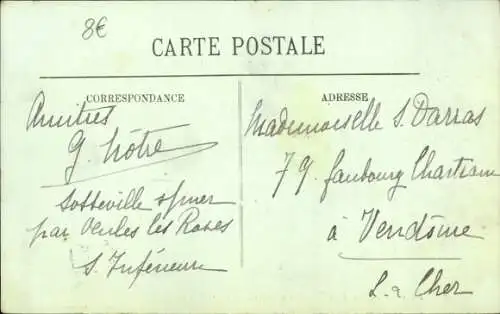 8€
CARTE POSTALE
CORRESPONDANCE
ADRESSE
Amitiés
G. Nôtre
Sotteville s/mer
par Veules les Roses
S. Inférieure
Mademoiselle S. Darras
79 faubourg Chartrain
à Vendôme
L. & Cher